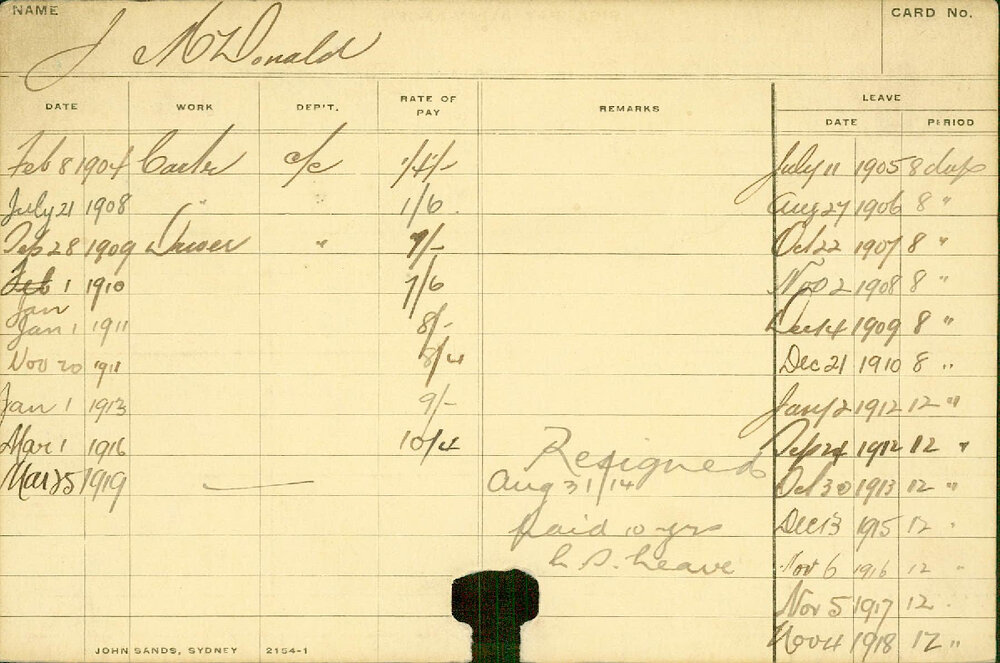 NAME J McDonald CARD No.
DATE WORK DEP'T. RATE OF PAY REMARKS LEAVE
DATE PERIOD
Feb 8 1904 Carter c/c July 11 1905 8 days
July 21 1908 " 1/6 Aug 27 1906 8 "
Sep 28 1909 Driver " 7/- Oct 22 1907 8 "
Feb 1 1910 7/6 Nov 2 1908 8 "
Jan
Jan 1 1911 8/- Dec 14 1909 8 "
Nov 20 1911 8/4 Dec 21 1910 8 "
Jan 1 1913 9/- Jany 2 1912 12 "
Mar 1 1916 10/4 Resigned Sep 24 1912 12 "
Mar 25 1919 — Aug 31/14 Oct 30 1913 12 "
paid 10 yrs Dec 13 1915 12 "
L. S. Leave Nov 6 1916 12 "
Nov 5 1917 12 "
Nov 4 1918 12 "
JOHN SANDS, SYDNEY 2154-1